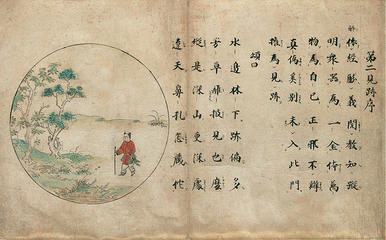 第二見跡序
依經解義閱教知蹤
明衆器為一金體萬
物為自己正邪不辨
真偽奚別未入此門
權為見跡
頌曰
水邊林下跡偏多
芳草離披見也麼
縱是深山更深處
遼天鼻孔怎藏佗